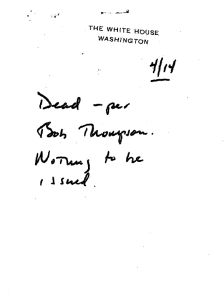 THE WHITE HOUSE
WASHINGTON
4/14
Dead - per
Bob Thompson.
Nothing to be
issued.